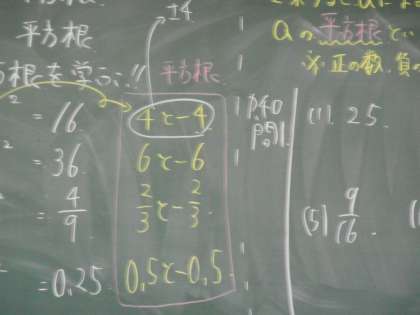 ±4
平方根
方根を学ぶ!!
平方根
² = 16 4と-4
² = 36 6と-6
= 4/9 2/3と-2/3.
² = 0.25 0.5と-0.5.
aの平方根とい
※正の数,負の
P.40
問1.
(1). 25.
(5) 9/16.